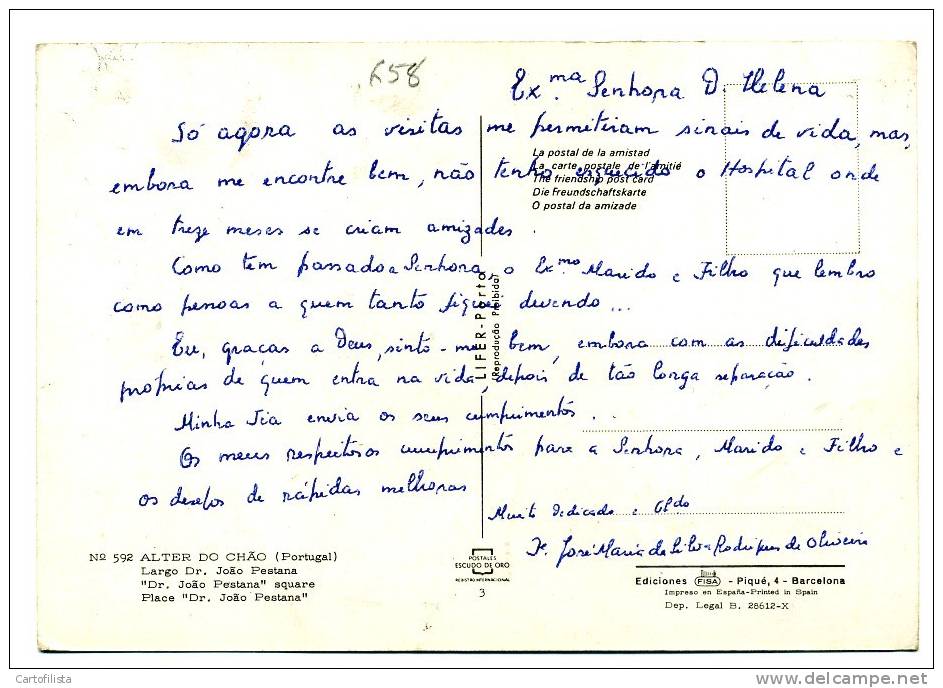 658
Ex.ma Senhora D. Helena
Só agora as visitas me permetiram sinais de vida, mas,
embora me encontre bem, não tenho esquecido o Hospital onde
em treze meses se criam amizades.
Como tem passado a Senhora, o Ex.mo Marido e Filho que lembro
como pessoas a quem tanto fiquei devendo...
Eu, graças a Deus, sinto-me bem, embora com as dificuldades
próprias de quem entra na vida, depois de tão longa separação.
Minha Tia envia os seus cumprimentos...
Os meus respeitosos cumprimentos para a Senhora, Marido e Filho e
os desejos de rápidas melhoras
Muito Dedicado e
José Maria da Silva Rodrigues de Oliveira
La postal de la amistad
La carte postale de l'amitié
The friendship post card
Die Freundschaftskarte
O postal da amizade
LIFER-Porto
(Reprodução Proibida)
Nº 592 ALTER DO CHÃO (Portugal)
Largo Dr. João Pestana
"Dr. João Pestana" square
Place "Dr. João Pestana"
POSTALES
ESCUDO DE ORO
REGISTRO INTERNACIONAL
3
Ediciones FISA - Piqué, 4 - Barcelona
Impreso en España-Printed in Spain
Dep. Legal B. 28612-X
Cartofilista
www.delcampe.net